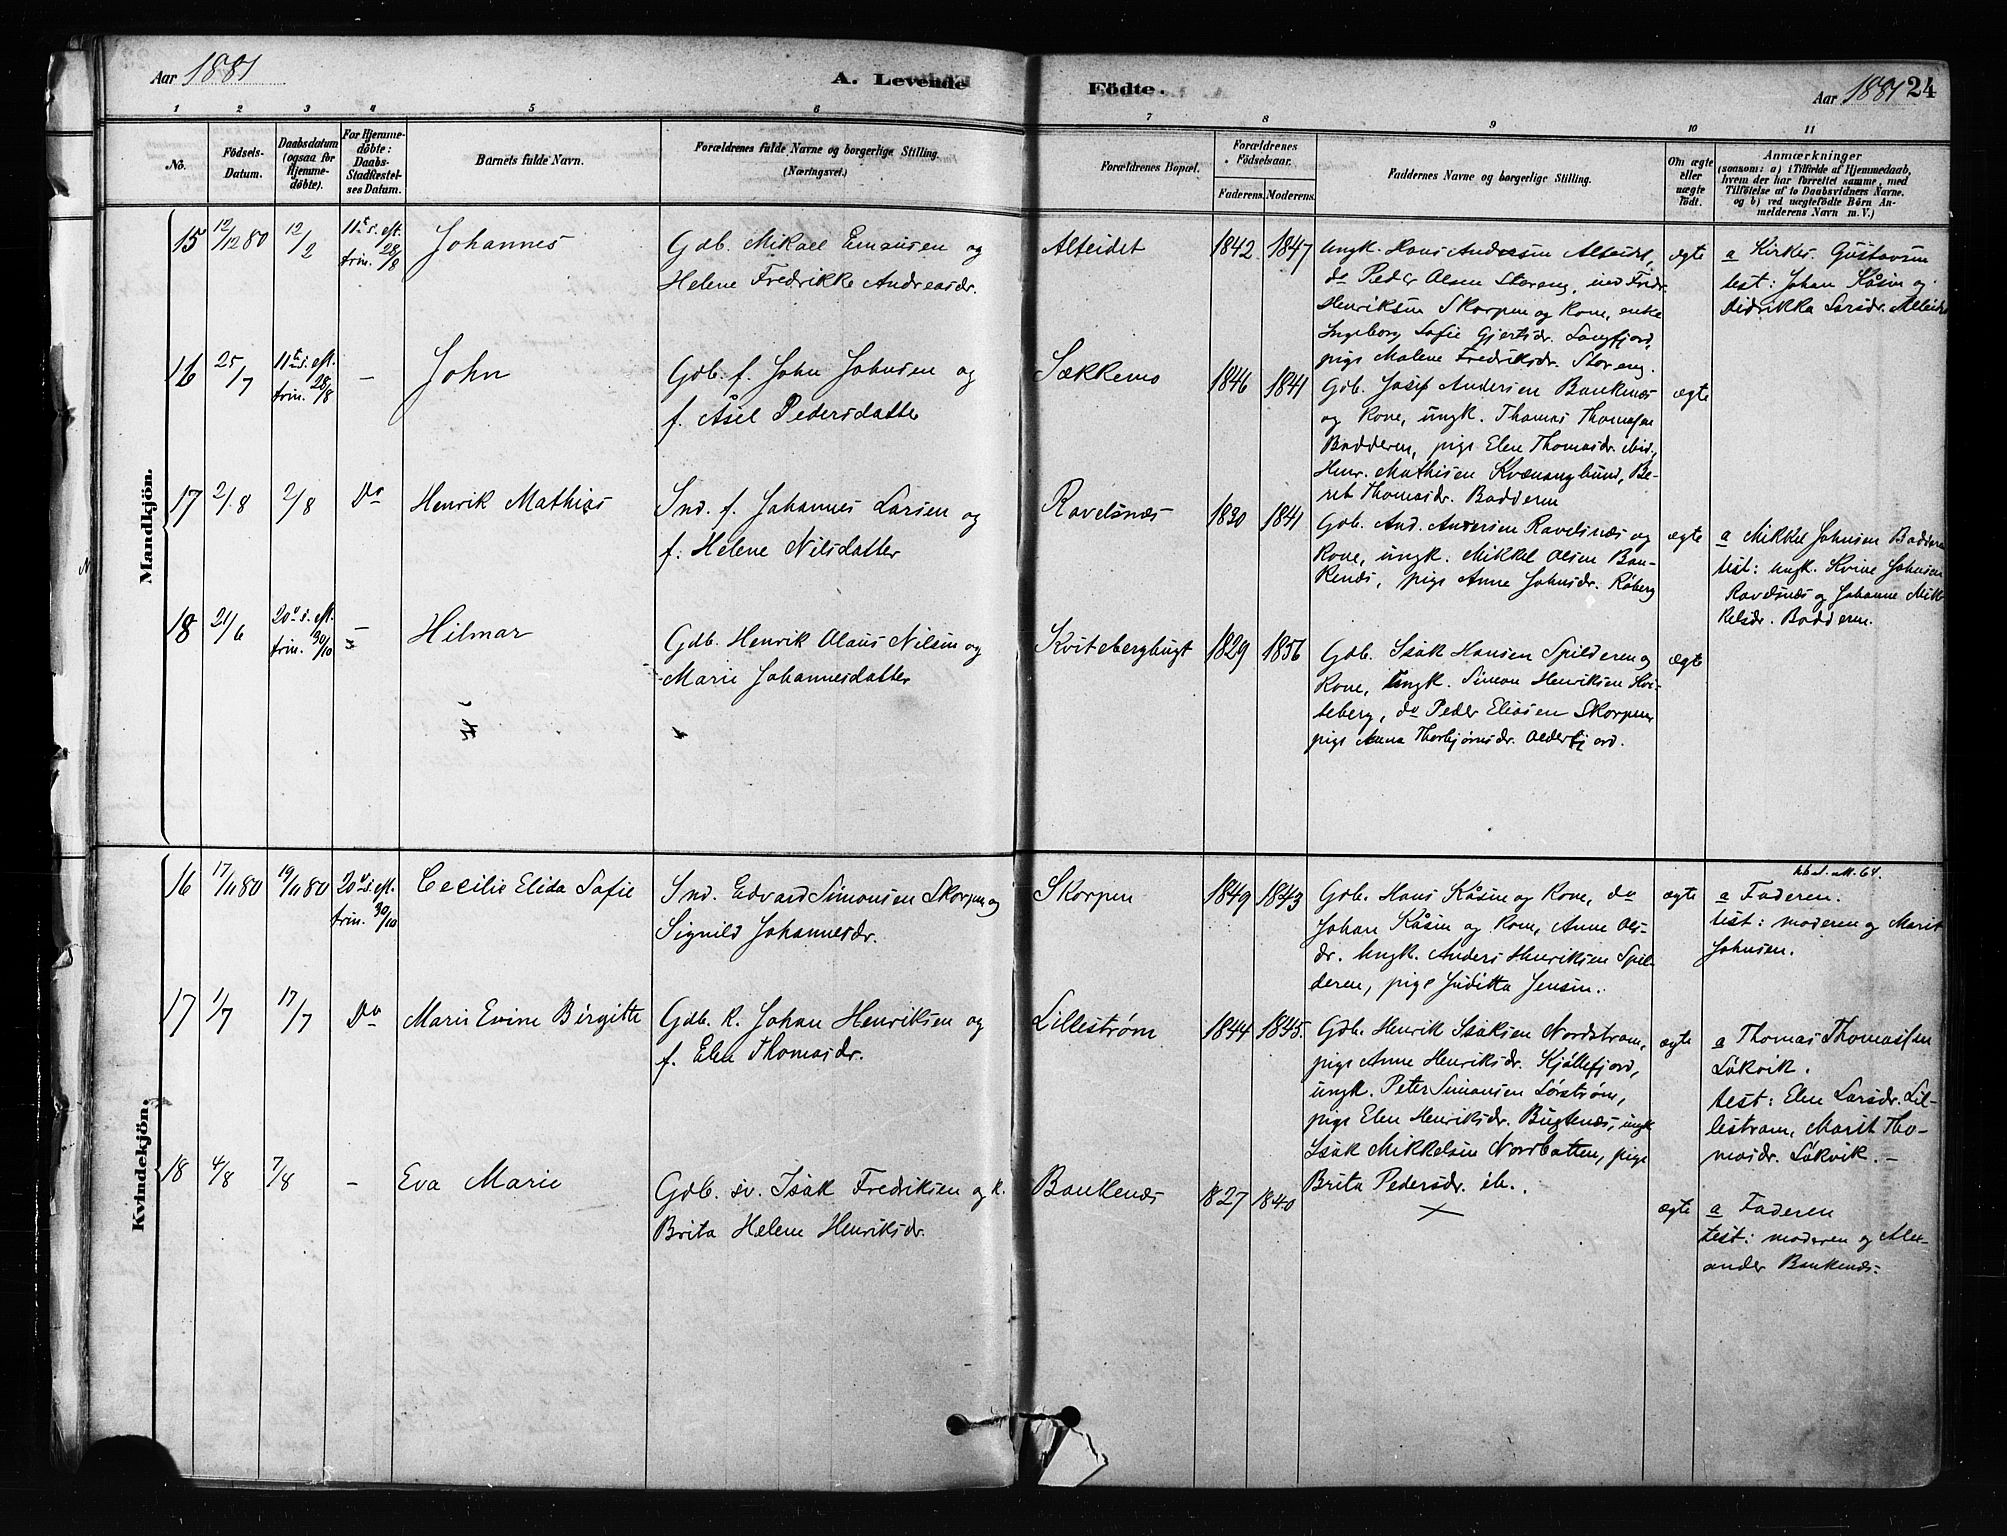 Aar 1881
A. Levende Födte.
Aar 1881 24
1 2 3 4 5 6 7 8 9 10 11
No.
Födsels-
Datum.
Daabsdatum
(ogsaa for
Hjemme-
döbte).
For Hjemme-
döbte:
Daabs-
Stadfæstel-
ses Datum.
Barnets fulde Navn.
Forældrenes fulde Navne og borgerlige Stilling
(Næringsvei.)
Forældrenes Bopæl.
Forældrenes
Födselsaar.
Faderens. Moderens.
Faddernes Navne og borgerlige Stilling.
Om ægte
eller
uægte
födt.
Anmærkninger
(saasom: a) i Tilfælde af Hjemmedaab,
hvem der har forrettet samme, med
Tilföielse af to Daabsvidners Navne.
og b) ved uægtefödte Börn An-
melderens Navn m. V.)
Mandkjön.
15 12/12 80 12/2
11te s. eft.
trin. 28/8
Johannes
Gdb. Mikael Emausen og
Helene Fredrikke Andreasdr.
Alteidet 1842 1847
Ungk. Hans Andreasen Alteidet,
do Peder Olsen Storeng, ind Fredr.
Henriksen Skorpen og Kone, enke
Ingeborg Sofie Gjertsdr. Langfjord,
pige Malene Fredriksdr. Storeng.
ægte
a Kirkes. Gustavsen
test: Johan Kåsen og
Didrikka Larsdr. Alteidet
16 25/7
11te s. eft.
trin. 28/8
–
John
Gdb. f. John Johnsen og
f. Åsel Pedersdatter
Sækkemo 1846 1841
Gdb. Josef Andersen Baukenæs
og Kone, ungk. Thomas Thomassen
Badderen, pige Elen Thomasdr. ibid.,
Henr. Mathisen Kvænangbund, Be-
ret Thomasdr. Badderen
ægte
17 2/8 2/8 Do
Henrik Mathias
Ind. f. Johannes Larsen og
f. Helene Nilsdatter
Ravelsnæs 1830 1841
Gdb. And. Andersen Ravelsnæs og
Kone, ungk. Mikkel Olsen Bau-
kenæs, pige Anne Johnsdr. Råberg
ægte
a Mikkel Johnsen Badderen
test: ungk. Kvine Johnsen
Ravelsnæs og Johanne Mik-
kelsdr. Badderen.
18 21/6
20de s. eft.
trin. 30/10
–
Hilmar
Gdb. Henrik Olaus Nilsen og
Marie Johannesdatter
Kviteberghugt 1829 1856
Gdb. Isak Hansen Spilderen og
Kone, ungk. Simon Henriksen Kvi-
teberg, do Peder Eliasen Skorpen,
pige Anna Thorbjørnsdr. Olderfjord.
ægte
Kvindekjön.
16 17/11 80 19/11 80
20de s. eft.
trin. 30/10
Cecilie Elida Sofie
Ind. Edvard Simonsen Skorpen og
Signild Johannesdr.
Skorpen 1849 1843
Gdb. Hans Kåsen og Kone, do
Johan Kåsen og Kone, Anne Ols-
dr. Ungk. Anders Henriksen Spil-
deren, pige Juditta Jensen.
ægte
a Faderen.
test: moderen og Marit
Johnsen.
17 1/7 17/7 Do
Maris Evine Birgitte
Gdb. k. Johan Henriksen og
f. Elen Thomasdr.
Lillestrøm 1844 1845.
Gdb. Henrik Isaksen Nordstrøm,
pige Anne Henriksdr. Kjøllefjord,
ungk. Peter Simonsen Sørstrøm,
pige Elen Henriksdr. Bugtenæs, ungk
Isak Mikkelsen Nordbotten, pige
Brita Pedersdr. ib.
ægte
a Thomas Thomassen
Låkvik.
test: Elen Larsdr. Lil-
lestrøm, Marit Tho-
masdr. Låkvik. –
18 4/8 7/8 –
Eva Marie
Gdb. sv. Isak Fredriksen og k.
Brita Helene Henriksdr.
Baukenæs 1827 1840
ægte
a Faderen
test: moderen og Alex-
ander Baukenæs.